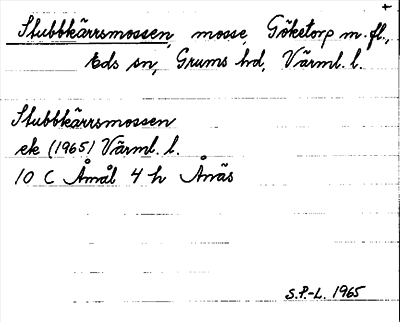 +
Stubbkärrsmossen, mosse, Göketorp m. fl.,
Eds sn, Grums hd, Värml. l.
Stubbkärrsmossen
ek (1965) Värml. l.
10 C Åmål 4 h Ånäs
S.P.-L. 1965